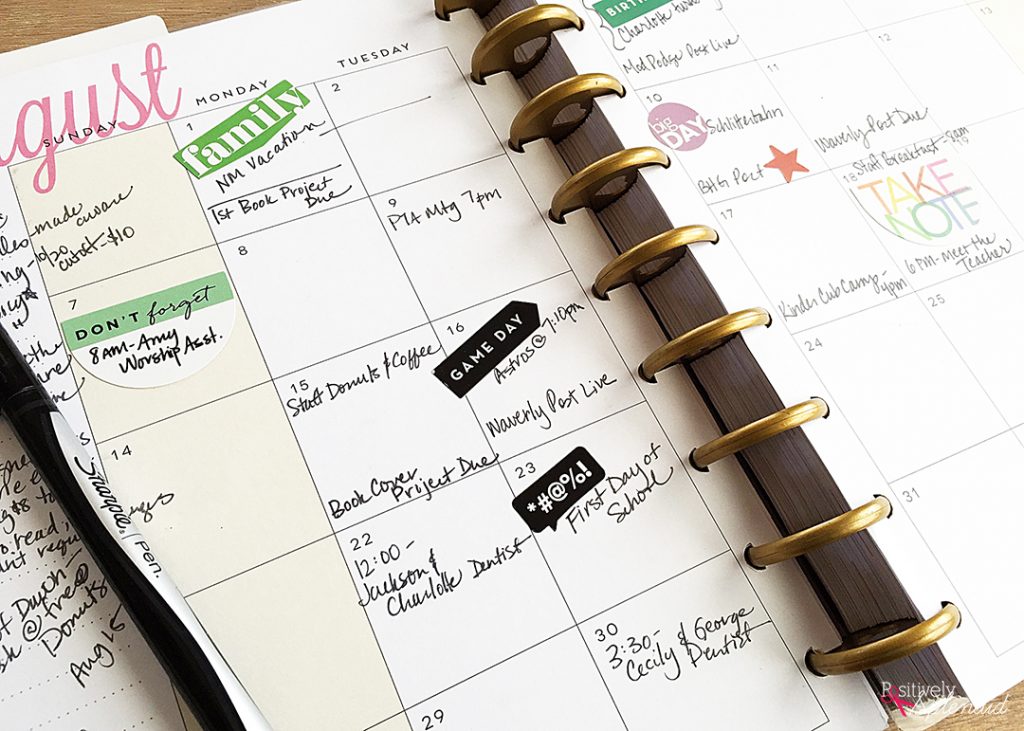 ugust
SUNDAY
MONDAY
TUESDAY
1
family
NM Vacation
1st Book Project
Due
2
made
aware
10/20
cutoff-$10
7
DON'T forget
8AM-Amy
Worship Asst.
8
9
PTA Mtg 7pm
14
15
Staff Donuts & Coffee
Book Cover
Project Due
16
GAME DAY
Astros@
7:10pm
Waverly Post Live
22
12:00-
Jackson &
Charlotte Dentist
23
*#@%!
First Day of
School
29
30
3:30- & George
Cecily Dentist
BIRTH
Charlotte
Mod Podge Post Live
10
big
DAY
Schlitterbahn
BHG Post
11
Waverly Post Due
12
13
17
Kinder Cub Camp-
6pm
18
Staff Breakfast-8am
TAKE
NOTE
6PM-Meet the
Teacher
24
25
31
Sharpie. Pen.
to read,
@free
Donuts
Aug 15
Positively
Splendid